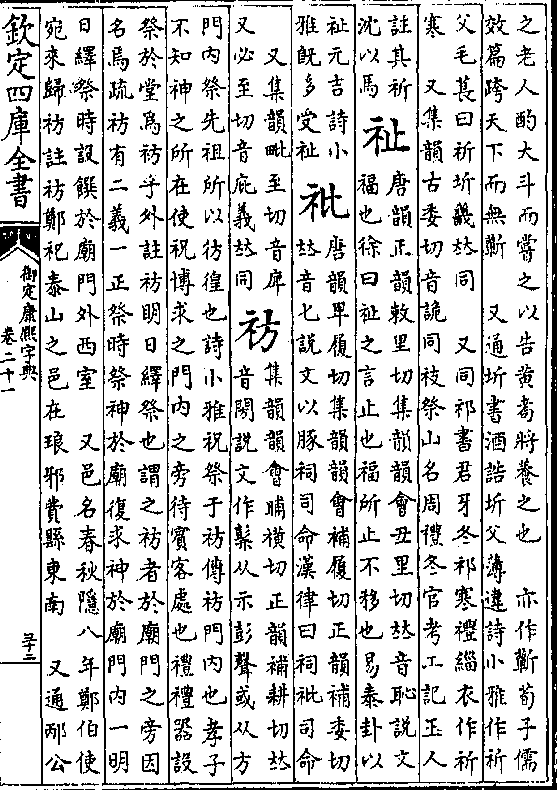 之老人酌大斗而嘗之以告黃耇將養之也　亦作蘄荀子儒
效篇跨天下而無蘄　又通圻書酒誥圻父薄違詩小雅作祈
父毛萇曰祈圻畿𠀤同　又同祁書君牙冬祁寒禮緇衣作祈
寒　又集韻古委切音詭同祪祭山名周禮冬官考工記玉人
註其祈
沈以馬
祉
唐韻正韻敕里切集韻韻會丑里切𠀤音恥說文
福也徐曰祉之言止也福所止不移也易泰卦以
祉元吉詩小
雅旣多受祉
䃾
唐韻卑履切集韻韻會補履切正韻補委切
𠀤音匕說文以豚祠司命漢律曰祠䃾司命
又集韻毗至切音庳
又必至切音庇義𠀤同
祊
集韻韻會晡橫切正韻補耕切𠀤
音閍說文作䰃从示彭聲或从方
門內祭先祖所以彷徨也詩小雅祝祭于祊傳祊門內也孝子
不知神之所在使祝博求之門內之旁待賓客處也禮禮器設
祭於堂爲祊乎外註祊明日繹祭也謂之祊者於廟門之旁因
名焉疏祊有二義一正祭時祭神於廟復求神於廟門內一明
日繹祭時設饌於廟門外西室　又邑名春秋隱八年鄭伯使
宛來歸祊註祊鄭祀泰山之邑在琅邪費縣東南　又通邴公
欽定四庫全書
御定康熙字典
卷二十一
三十二